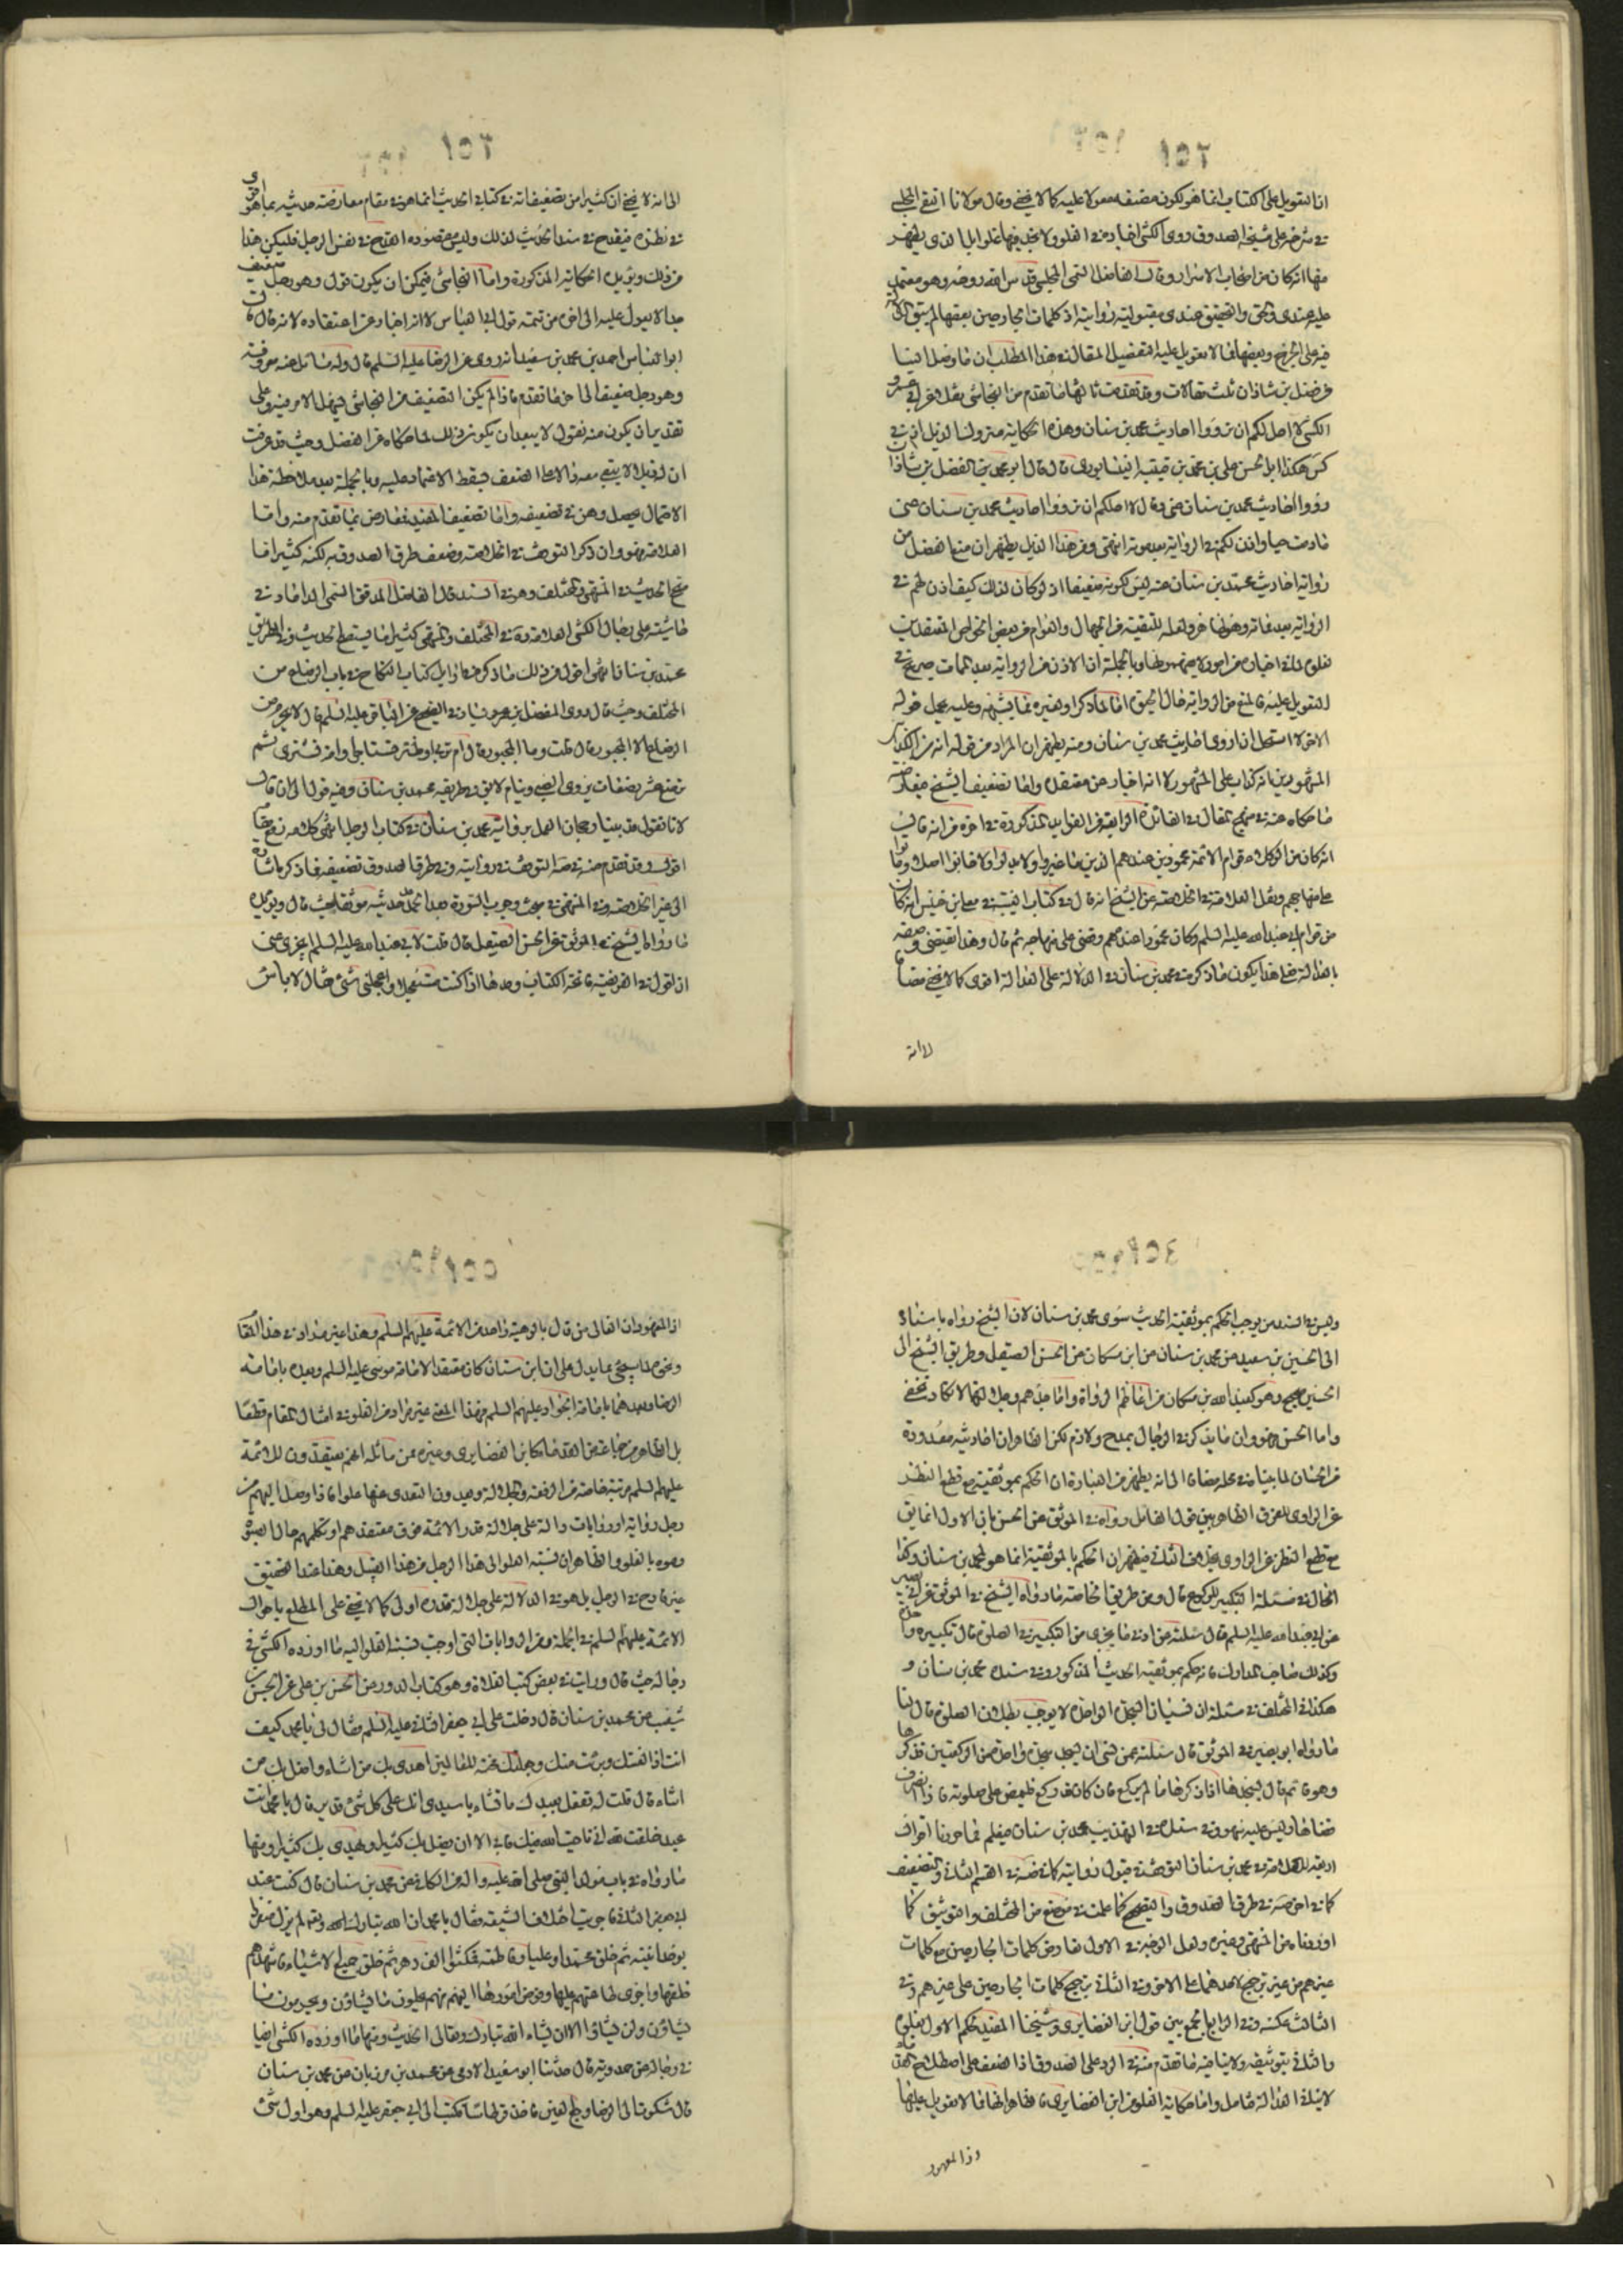 ١٥٢
انا التعويل على الكتاب انما هو لكون مصنفه معولا عليه كما لا يخفى وقال مولانا التقي المجلسي
في شرحه على مشيخة الصدوق روى الكشي اخبارا في الغلو ولا نجد فيها غلوا بل الذي يظهر
منها انه كان من اصحاب الاسرار وقال الفاضل السمي المجلسي قدس الله روحه وهو معتمد
عليه عندي والتحقيق عندي مقبولية رواياته اذ كلمات الجارحين بعضها لم يبق
فيه على الجرح وبعضها مما لا تعويل عليه
فضل بن شاذان ثلث مقالات وقد تقدمت ثالثها ما تقدم من النجاشي بقل عن ابي عمرو
الكشي لا احل لكم ان ترووا احاديث محمد بن سنان وهذه الحكاية
كش هكذا ابو الحسن علي بن محمد بن قتيبة النيسابوري قال قال ابو محمد الفضل بن شاذان
ردوا احاديث محمد بن سنان عني وقال لا احل لكم ان ترووا احاديث محمد بن سنان عني
مادمت حيا واذن لكم في الرواية بعد موته انتهى ومن هذا الذيل يظهر ان منع الفضل من
رواية احاديث محمد بن سنان عنه ليس لكونه ضعيفا اذ لو كان كذلك كيف اذن لهم في
الرواية بعد وفاته
وبالجملة ان الاذن في الرواية بعد الممات صريح في
الاخر لا استحل ان اروي احاديث محمد بن سنان ومنه يظهر ان المراد من قوله انه من الكذابين
المشهورين
ما حكاه عنه في منهج المقال في الفائدة الرابعة من الفوايد المذكورة في اخره من انه قال
انه كان من الوكلاء وقوام الائمة محمودين عندهم الذين ما غيروا ولا بدلوا ولا خانوا اصلا وماتوا
على منهاجهم ونقل العلامة في الخلاصة عن الشيخ انه قال في كتاب الغيبة في معلى بن خنيس انه كان
من قوام ابي عبد الله عليه السلم وكان محمودا عندهم ومضى على منهاجه ثم قال وهذا يقتضي وصفه
بالعدالة فعلى هذا يكون ما ذكره في محمد بن سنان في الدلالة على العدالة اقوى كما لا يخفى مضافا
الى انه
١٥٣
الى انه لا يخفى ان كثيرا من تضعيفاته في كتابي الحديث انما هو في مقام معارضته حديثه بما هو اقوى
في نظره فيقدح في سند الحديث لذلك وليس مقصوده القدح في نفس الرجل فليكن هذا
من ذلك ويؤيده الحكاية المذكورة واما النجاشي فيمكن ان يكون قوله وهو رجل ضعيف
جدا لا يعول عليه الى اخره من تتمة قول ابي العباس لا انه اخبار عن اعتقاده لانه قال قال
ابو العباس احمد بن محمد بن سعيد انه روى عن الرضا عليه السلم قال وله مسائل عنه معروفة
وهو رجل ضعيف الى اخر ما تقدم فاذا لم يكن التضعيف من النجاشي فيهل الامر فيه وعلى
تقدير ان يكون منه نقول لا يبعد ان يكون في ذلك لما حكاه عن الفضل وحيث قد عرفت
الاحتمال يحصل وهن في تضعيفه واما تضعيف المفيد فمعارض بما تقدم منه واما
العلامة فهو وان ذكر التوقف في الخلاصة وضعف طرق الصدوق به لكنه كثيرا ما
صحح الحديث في المنتهى والمختلف وهو في السند قال الفاضل المدقق السمي الداماد في
حاشيته على رجال الكشي العلامة ره في المختلف والمنتهى كثيرا ما يستصح الحديث وفي الطريق
محمد بن سنان انتهى اقول ومن ذلك ما ذكره في اوايل كتاب النكاح في باب الرضاع من
المختلف وحيث قال روى الفضيل بن يسار في الصحيح عن الباقر عليه السلم قال لا يحرم من
الرضاع الا المجبور قال قلت وما المجبور قال ام تربي او ظئر تستاجر او امة تشترى ثم
ترضع عشر رضعات يروى الصبي وينام لا يق في طريقه محمد بن سنان وفيه قول الى ان قال
لانا نقول قد بينا رجحان العمل برواية محمد بن سنان في كتاب الرجال انتهى كلامه رفع مقامه
اقول وقد تقدم منه في صه التوقف في روايته وفي طرق الصدوق تضعيفه
الى غير الخلاصة وفي المنتهى في مبحث وجوب السورة عد حديثه موثقا حيث قال ويؤيده
ما رواه الشيخ في الموثق عن الحسن الصيقل قال قلت لابي عبد الله عليه السلم ايجزي عني
ان اقول في الفريضة فاتحة الكتاب وحدها اذا كنت مستعجلا او اعجلني شئ فقال لا باس
١٥٤
وليس في السند من يوجب الحكم بموثقية الحديث سوى محمد بن سنان لان الشيخ رواه باسناده
الى الحسين بن سعيد عن محمد بن سنان عن ابن مسكان عن الحسن الصيقل وطريق الشيخ الى
الحسين صحيح وهو كعبد الله بن مسكان من اعاظم الرواة واماجدهم وجلالتهما لا تكاد تخفى
واما الحسن فهو وان ما يذكر في الرجال بمدح ولا ذم لكن الظاهر ان احاديثه معدودة
من الحسان لما بينا في محله مضافا الى انه يظهر من العبارة ان الحكم بموثقيته مع قطع النظر
عن الراوي للفرق الظاهر بين قول القائل رواه في الموثق عن الحسن بان الاول انما يق
مع قطع النظر عن الراوي بخلاف الثاني فيظهر ان الحكم بالموثقية انما هو لمحمد بن سنان وكذا
الحال في مسئلة التكبير للركوع قال ومن طريق الخاصة ما رواه الشيخ في الموثق عن ابي بصير
عن ابي عبد الله عليه السلم قال سئلته عن ادنى ما يجزي من التكبير في الصلوة قال تكبيرة واحدة
وكذلك صاحب المدارك فانه حكم بموثقية الحديث المذكور وفي سنده محمد بن سنان و
هكذا في المختلف في مسئلة ان نسيان السجدة الواحدة لا يوجب بطلان الصلوة قال لنا
ما رواه ابو بصير في الموثق قال سئلته عمن نسي ان يسجد سجدة واحدة فذكرها
وهو قائم قال يسجدها اذا ذكرها ما لم يركع فان كان قد ركع فليمض على صلوته فاذا انصرف
قضاها وليس عليه سهو وفي سنده في التهذيب محمد بن سنان فيعلم مما حررنا اقوال
اربعة للعلامة في محمد بن سنان التوقف في قبول روايته كما في صه في القسم الثاني والتضعيف
كما في اخر صه في طرق الصدوق والتصحيح كما علمت في موضع من المختلف والتوثيق كما
اوردناه من المنتهى وغيره ولعل الوجه في الاول تعارض كلمات الجارحين مع كلمات
غيرهم من غير ترجيح لاحدهما على الاخر وفي الثاني ترجيح كلمات الجارحين على غيرهم وفي
الثالث عكسه وفي الرابع الجمع بين قول ابن الغضايري وشيخنا المفيد لحكم الاول بغلوه
والثاني بتوثيقه ولا ينافيه ما تقدم منه في الرد على الصدوق اذا الضعف على اصطلاح القدماء
لا ينافي العدالة فتامل واما حكاية الغلو من ابن الغضايري فالظاهر انها مما لا تعويل عليها
اذ المعهود
١٥٥
اذ المعهود ان الغالي من قال بالوهية واحد من الائمة عليهم السلم وهذا غير مراد في هذا المقام
ونحوه لما سيجئ مما يدل على ان ابن سنان كان معتقدا لامامة موسى عليه السلم وبعده بامامة
الرضا وبعدهما بامامة الجواد عليهم السلم فهذا المعنى غير مراد من الغلو في امثال المقام قطعا
بل الظاهر من جماعة من القدماء كابن الغضايري وغيره ممن ماثله انهم يعتقدون للائمة
عليهم السلم مرتبة خاصة من الرفعة والجلالة ويعدون التعدي عنها غلوا فاذا وصل اليهم من
رجل رواية او روايات دالة على جلالة قدر الائمة فوق معتقدهم
رموه بالغلو والظاهر ان نسبة الغلو الى هذا الرجل من هذا القبيل وهذا عند التحقيق
غير قادح في الرجل بل هو في الدلالة على جلالة قدره اولى كما لا يخفى على المطلع باحوال
الائمة عليهم السلم في الجملة ومن الروايات التي اوجبت نسبة الغلو اليه ما اورده الكشي في
رجاله حيث قال ورايت في بعض كتب الغلاة وهو كتاب الدور عن الحسن بن علي عن الحسن بن
شعيب عن محمد بن سنان قال دخلت على ابي جعفر الثاني عليه السلم فقال لي يا محمد كيف
انت اذا لعنتك وبرئت منك وجعلتك محنة للعالمين اهدي بك من اشاء واضل بك من
اشاء قال قلت له تفعل بعبدك ما تشاء يا سيدي انك على كل شئ قدير قال يا محمد انت
عبد خلصت لله اني ناجيت الله فيك فابى الا ان يضل بك كثيرا ويهدي بك كثيرا ومنها
ما رواه في باب مولد النبي صلى الله عليه واله من الكافي عن محمد بن سنان قال كنت عند
ابي جعفر الثاني فاجريت اختلاف الشيعة فقال يا محمد ان الله تبارك وتعالى لم يزل متفردا
بوحدانيته ثم خلق محمدا وعليا وفاطمة فمكثوا الف دهر ثم خلق جميع الاشياء فاشهدهم
خلقها واجرى طاعتهم عليها وفوض امورها اليهم فهم يحلون ما يشاؤن ويحرمون ما
يشاؤن ولن يشاؤا الا ان يشاء الله تبارك وتعالى الحديث ومنها ما اورده الكشي ايضا
في رجاله عن حمدويه قال حدثنا ابو سعيد الادمي عن محمد بن مرزبان عن محمد بن سنان
قال شكوت الى الرضا وجع العين فاخذ قرطاسا فكتب الى ابي جعفر عليه السلم وهو اول شئ